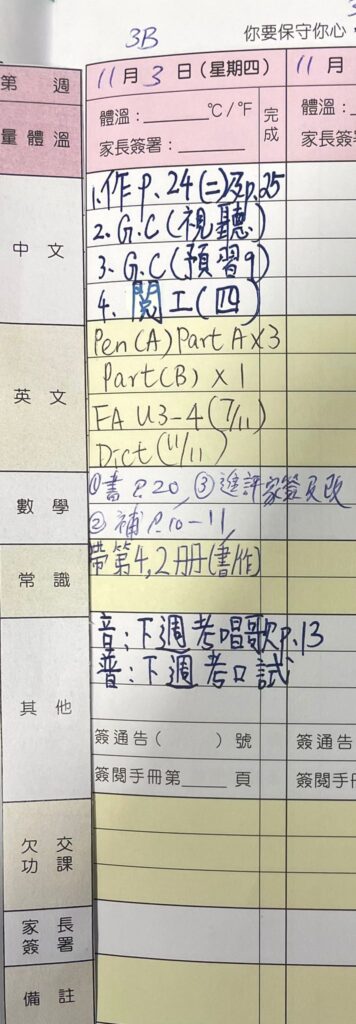 3B
你要保守你心，
第 週
11月3日（星期四）
11月
量體溫
體溫：______℃/℉
完成
體溫：
家長簽署：______
家長簽署
中文
1.作P.24(二)及p.25
2. G.C(視聽)
3. G.C(預習9)
4. 閱工(四)
英文
Pen(A) Part A×3
Part(B) ×1
FA U3-4(7/11)
Dict(11/11)
數學
①書P.20, ③進評家簽及改
②補P.10-11
常識
帶第4,2冊(書作)
其他
音:下週考唱歌p.13
普:下週考口試
簽通告（ ）號
簽通告
簽閱手冊第____頁
簽閱手冊
欠交功課
家長簽署
備註